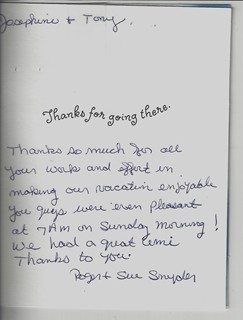 Josephine + Tony,
Thanks for going there.
Thanks so much for all
your work and effort in
making our vacation enjoyable
You guys were even pleasant
at 7AM on Sunday morning!
We had a great time
Thanks to you.
Roger + Sue Snyder